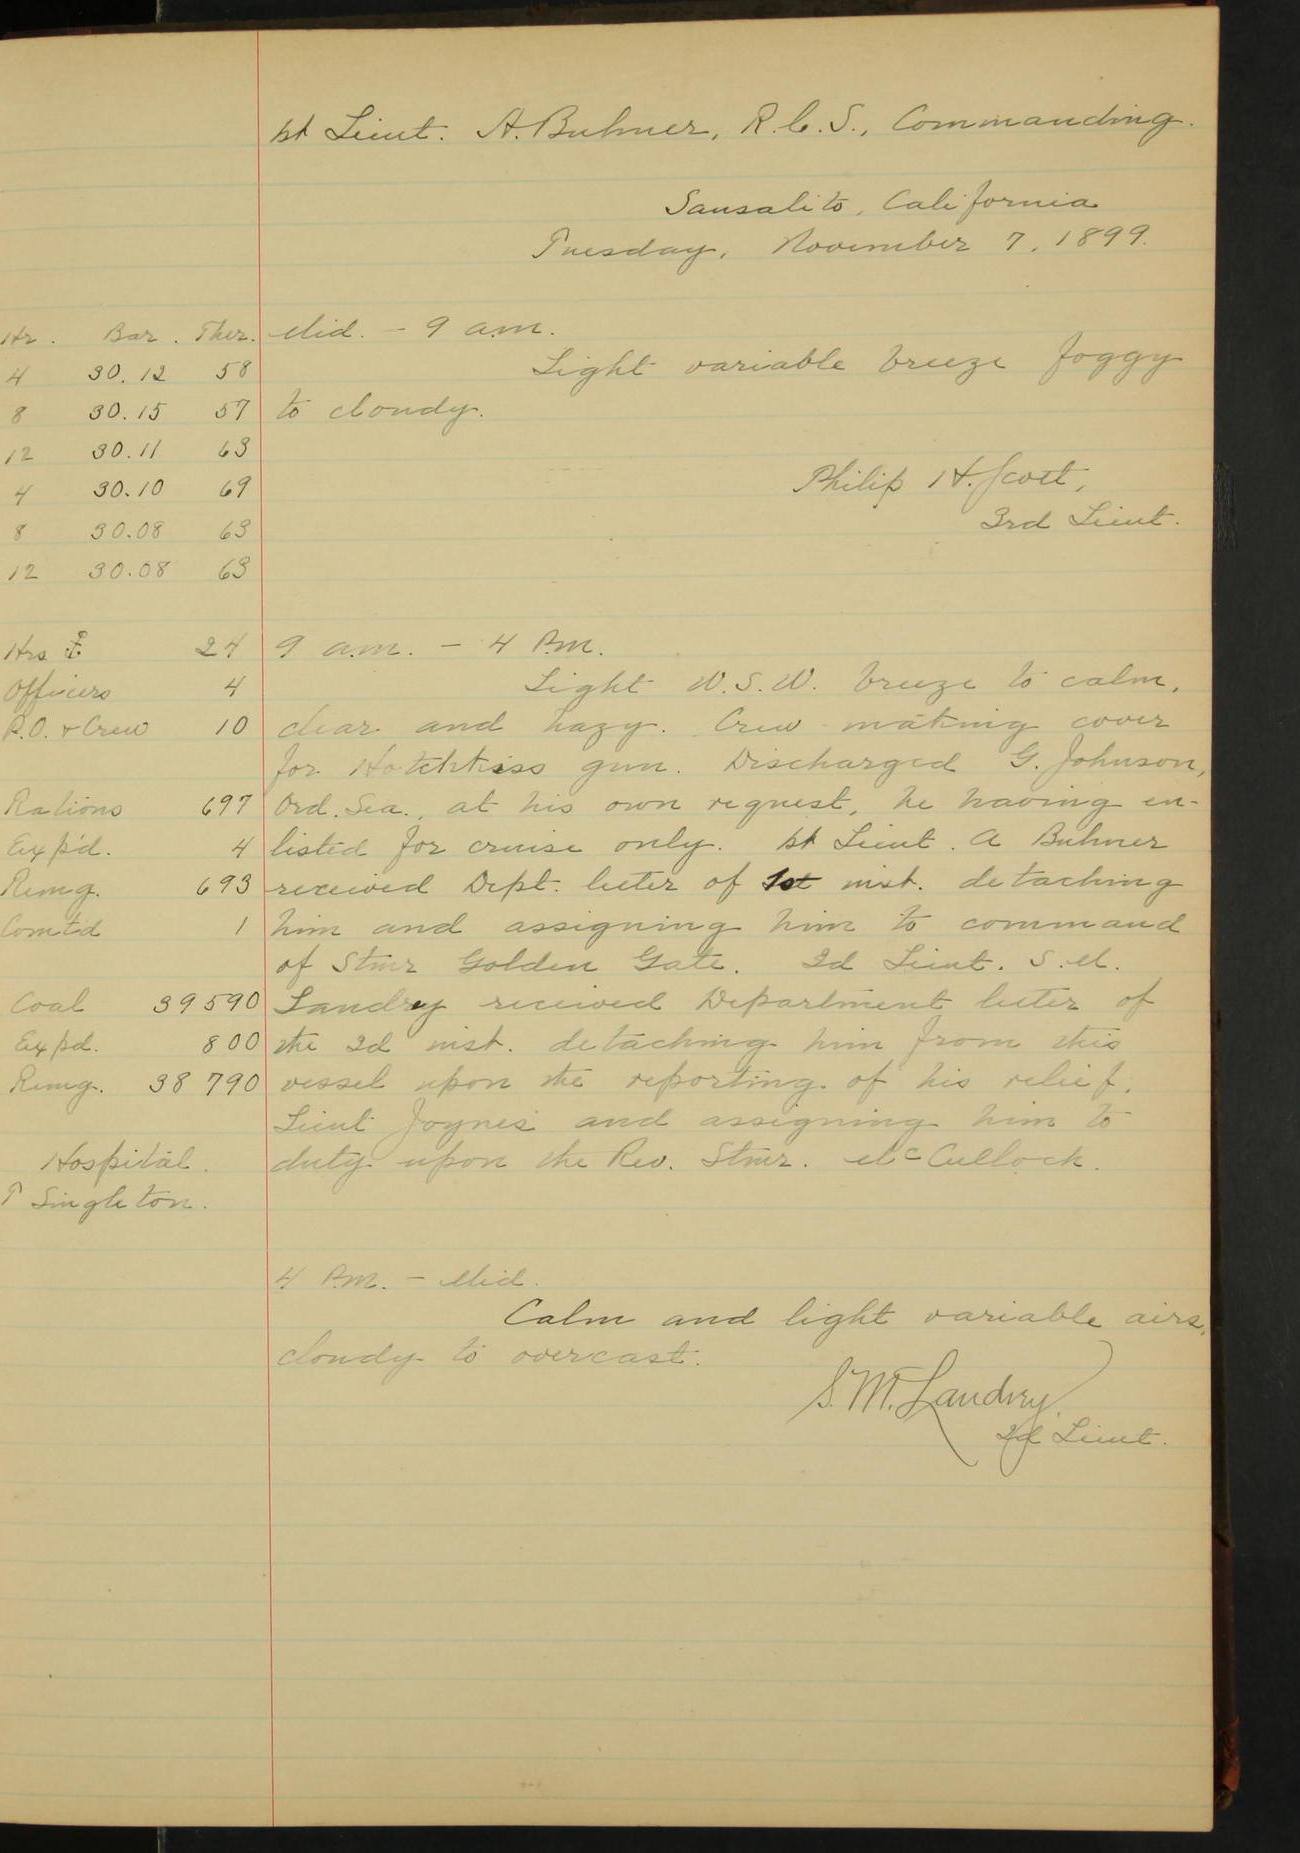 1st Lieut. A. Buhner, R.C.S., Commanding.
Sausalito, California
Tuesday, November 7, 1899.
Hr. Bar. Ther. Mid. - 9 a.m.
4 30.12 58 Light variable breeze foggy
8 30.15 57 to cloudy.
12 30.11 63
4 30.10 69 Philip H. Scott,
8 30.08 63 3rd Lieut.
12 30.08 63
Hrs ⚓ 24 9 a.m. - 4 P.m.
Officers 4 Light W.S.W. breeze to calm,
P.O. & Crew 10 clear and hazy. Crew making cover
for Hotchkiss gun. Discharged G. Johnson,
Rations 697 Ord. Sea., at his own request, he having en-
Exp'd. 4 listed for cruise only. 1st Lieut. A Buhner
Remg. 693 received Dept. letter of 1st inst. detaching
Comt'd 1 him and assigning him to command
of Stmr Golden Gate. 2d Lieut. S.M.
Coal 39590 Landry received Department letter of
Expd. 800 the 2d inst. detaching him from this
Remg. 38790 vessel upon the reporting of his relief,
Lieut Joynes and assigning him to
Hospital. duty upon the Rev. Stmr. McCullock.
T Singleton.
4 P.m. - Mid.
Calm and light variable airs,
cloudy to overcast.
S.M. Landry
2d Lieut.